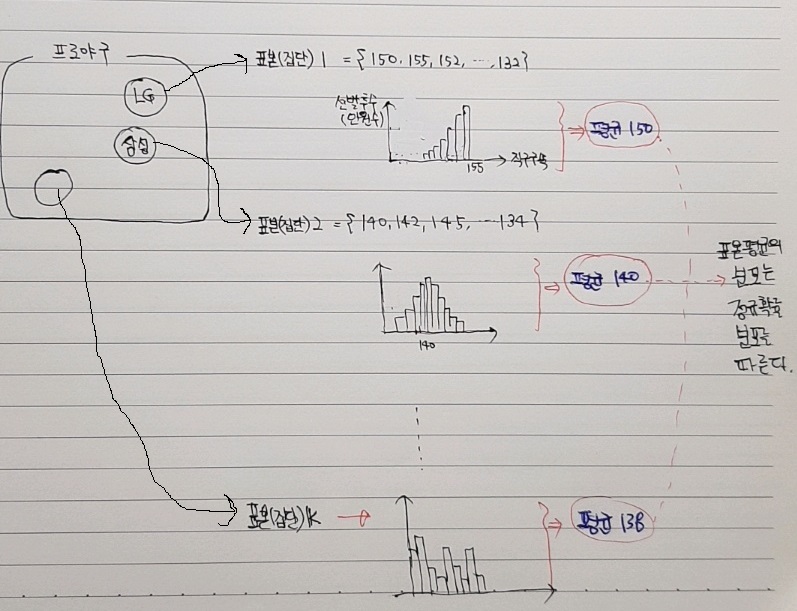 프로야구
LG
삼성
표본(집단) 1 = {150, 155, 152, ···, 132}
선발투수
(인원수)
155
직구구속
⇒ 평균 150
표본(집단) 2 = {140, 142, 145, ···134}
140
⇒ 평균 140
표본평균의
분포는
정규확률
분포를
따른다.
표본(집단)K
⇒ 평균 138